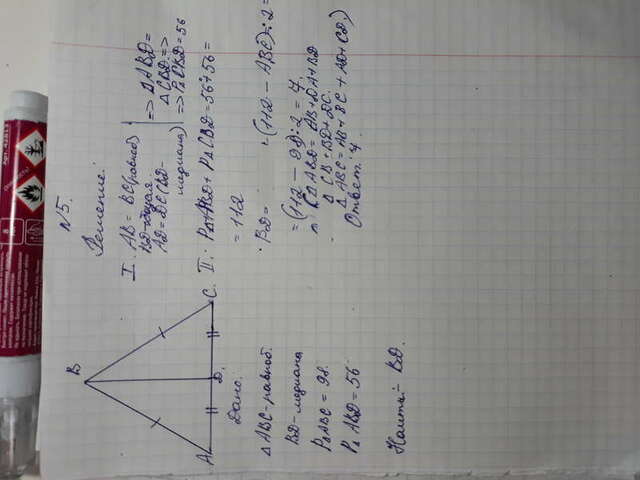 Арт. 42813
N5.
Решение:
B
A
D.
C.
I. AB = BC (равноб)
BD-общая.
AD = DC (BD-
медиана)
=> ΔABD =
ΔCBD. =>
=> PΔCBD = 56
II. PΔABD + PΔCBD = 56+56 =
= 112
BD = (112 - ABC) : 2 =
= (112 - 98) : 2 = 7.
(ΔABD = AB + DA + BD
Δ CB + BD + DC.
ΔABC = AB + BC + AD + CD.)
Ответ: 7.
Дано:
ΔABC-равноб.
BD-медиана
PΔABC = 98.
PΔABD = 56
Найти:- BD.